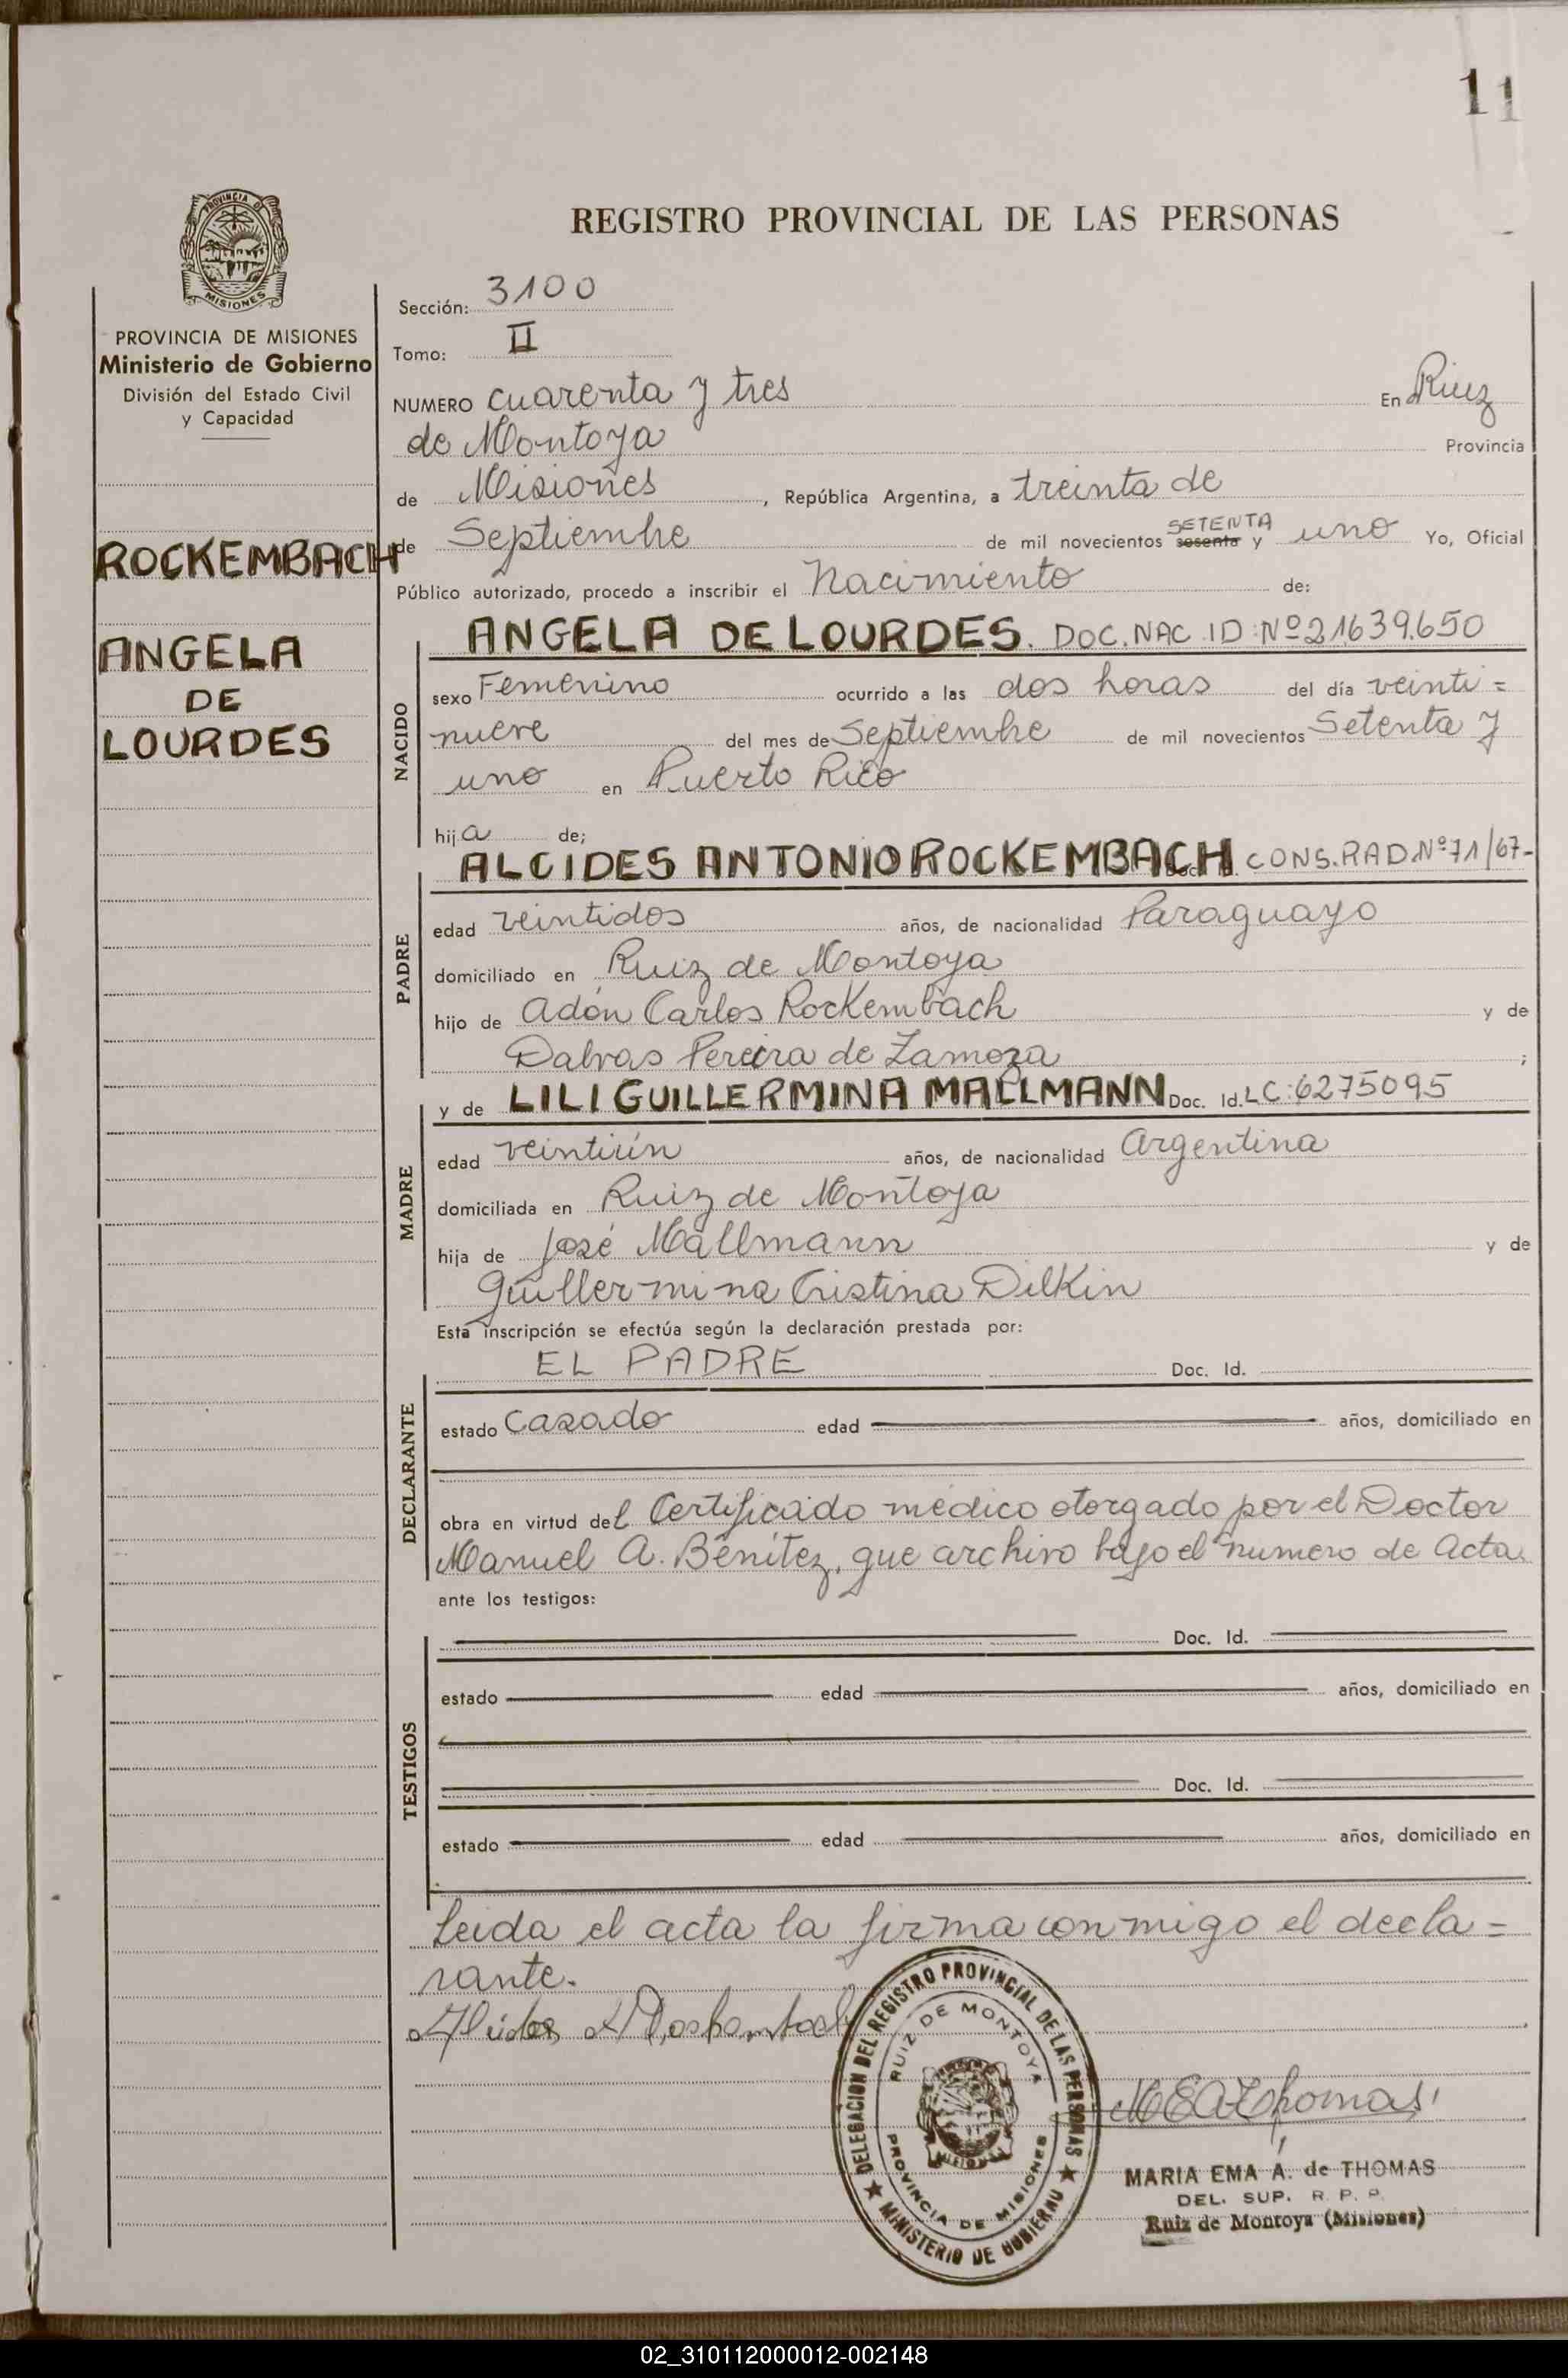 11
PROVINCIA DE
MISIONES
REGISTRO PROVINCIAL DE LAS PERSONAS
PROVINCIA DE MISIONES
Ministerio de Gobierno
División del Estado Civil
y Capacidad
ROCKEMBACH
ANGELA
DE
LOURDES
Sección: 3100
Tomo: II
NUMERO cuarenta y tres En Ruiz
de Montoya Provincia
de Misiones, República Argentina, a treinta de
de Septiembre de mil novecientos sesenta SETENTA y uno Yo, Oficial
Público autorizado, procedo a inscribir el Nacimiento de:
NACIDO
ANGELA DE LOURDES. DOC. NAC. ID: Nº 21639.650
sexo Femenino ocurrido a las dos horas del día veinti=
nueve del mes de Septiembre de mil novecientos Setenta y
uno en Puerto Rico
hija de;
PADRE
ALCIDES ANTONIO ROCKEMBACH CONS. RAD. Nº 71/67-
edad veintidos años, de nacionalidad Paraguayo
domiciliado en Ruiz de Montoya
hijo de Adón Carlos Rockembach y de
Dalvas Pereira de Zamoza;
MADRE
y de LILI GUILLERMINA MALLMANN Doc. Id. LC: 6275095
edad veintiún años, de nacionalidad Argentina
domiciliada en Ruiz de Montoya
hija de José Mallmann y de
Guillermina Cristina Dilkin
Esta inscripción se efectúa según la declaración prestada por:
DECLARANTE
EL PADRE Doc. Id.
estado Casado edad años, domiciliado en
obra en virtud del Certificado médico otorgado por el Doctor
Manuel A. Benítez, que archivo bajo el numero de Acta.
ante los testigos:
TESTIGOS
Doc. Id.
estado edad años, domiciliado en
Doc. Id.
estado edad años, domiciliado en
Leida el acta la firma conmigo el decla=
rante.
DELEGACION DEL REGISTRO PROVINCIAL DE LAS PERSONAS
MINISTERIO DE GOBIERNO
RUIZ DE MONTOYA
PROVINCIA DE MISIONES
MEA Thomas
MARIA EMA A. de THOMAS
DEL. SUP. R. P. P.
Ruiz de Montoya (Misiones)
02_310112000012-002148